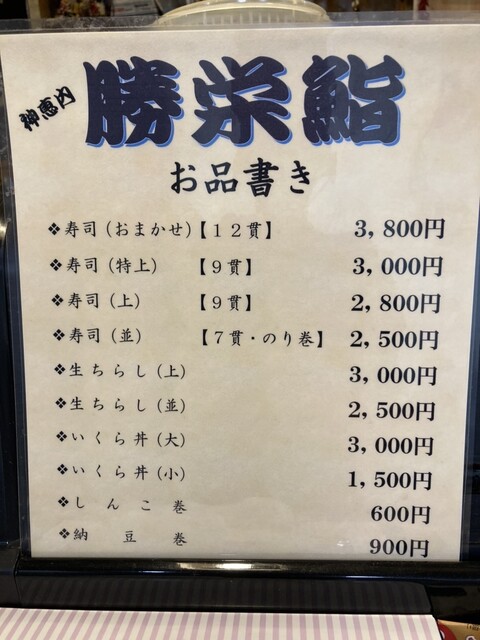 神恵内
勝栄鮨
お品書き
❖寿司(おまかせ)【12貫】 3,800円
❖寿司(特上) 【9貫】 3,000円
❖寿司(上) 【9貫】 2,800円
❖寿司(並) 【7貫・のり巻】 2,500円
❖生ちらし(上) 3,000円
❖生ちらし(並) 2,500円
❖いくら丼(大) 3,000円
❖いくら丼(小) 1,500円
❖しんこ巻 600円
❖納豆巻 900円